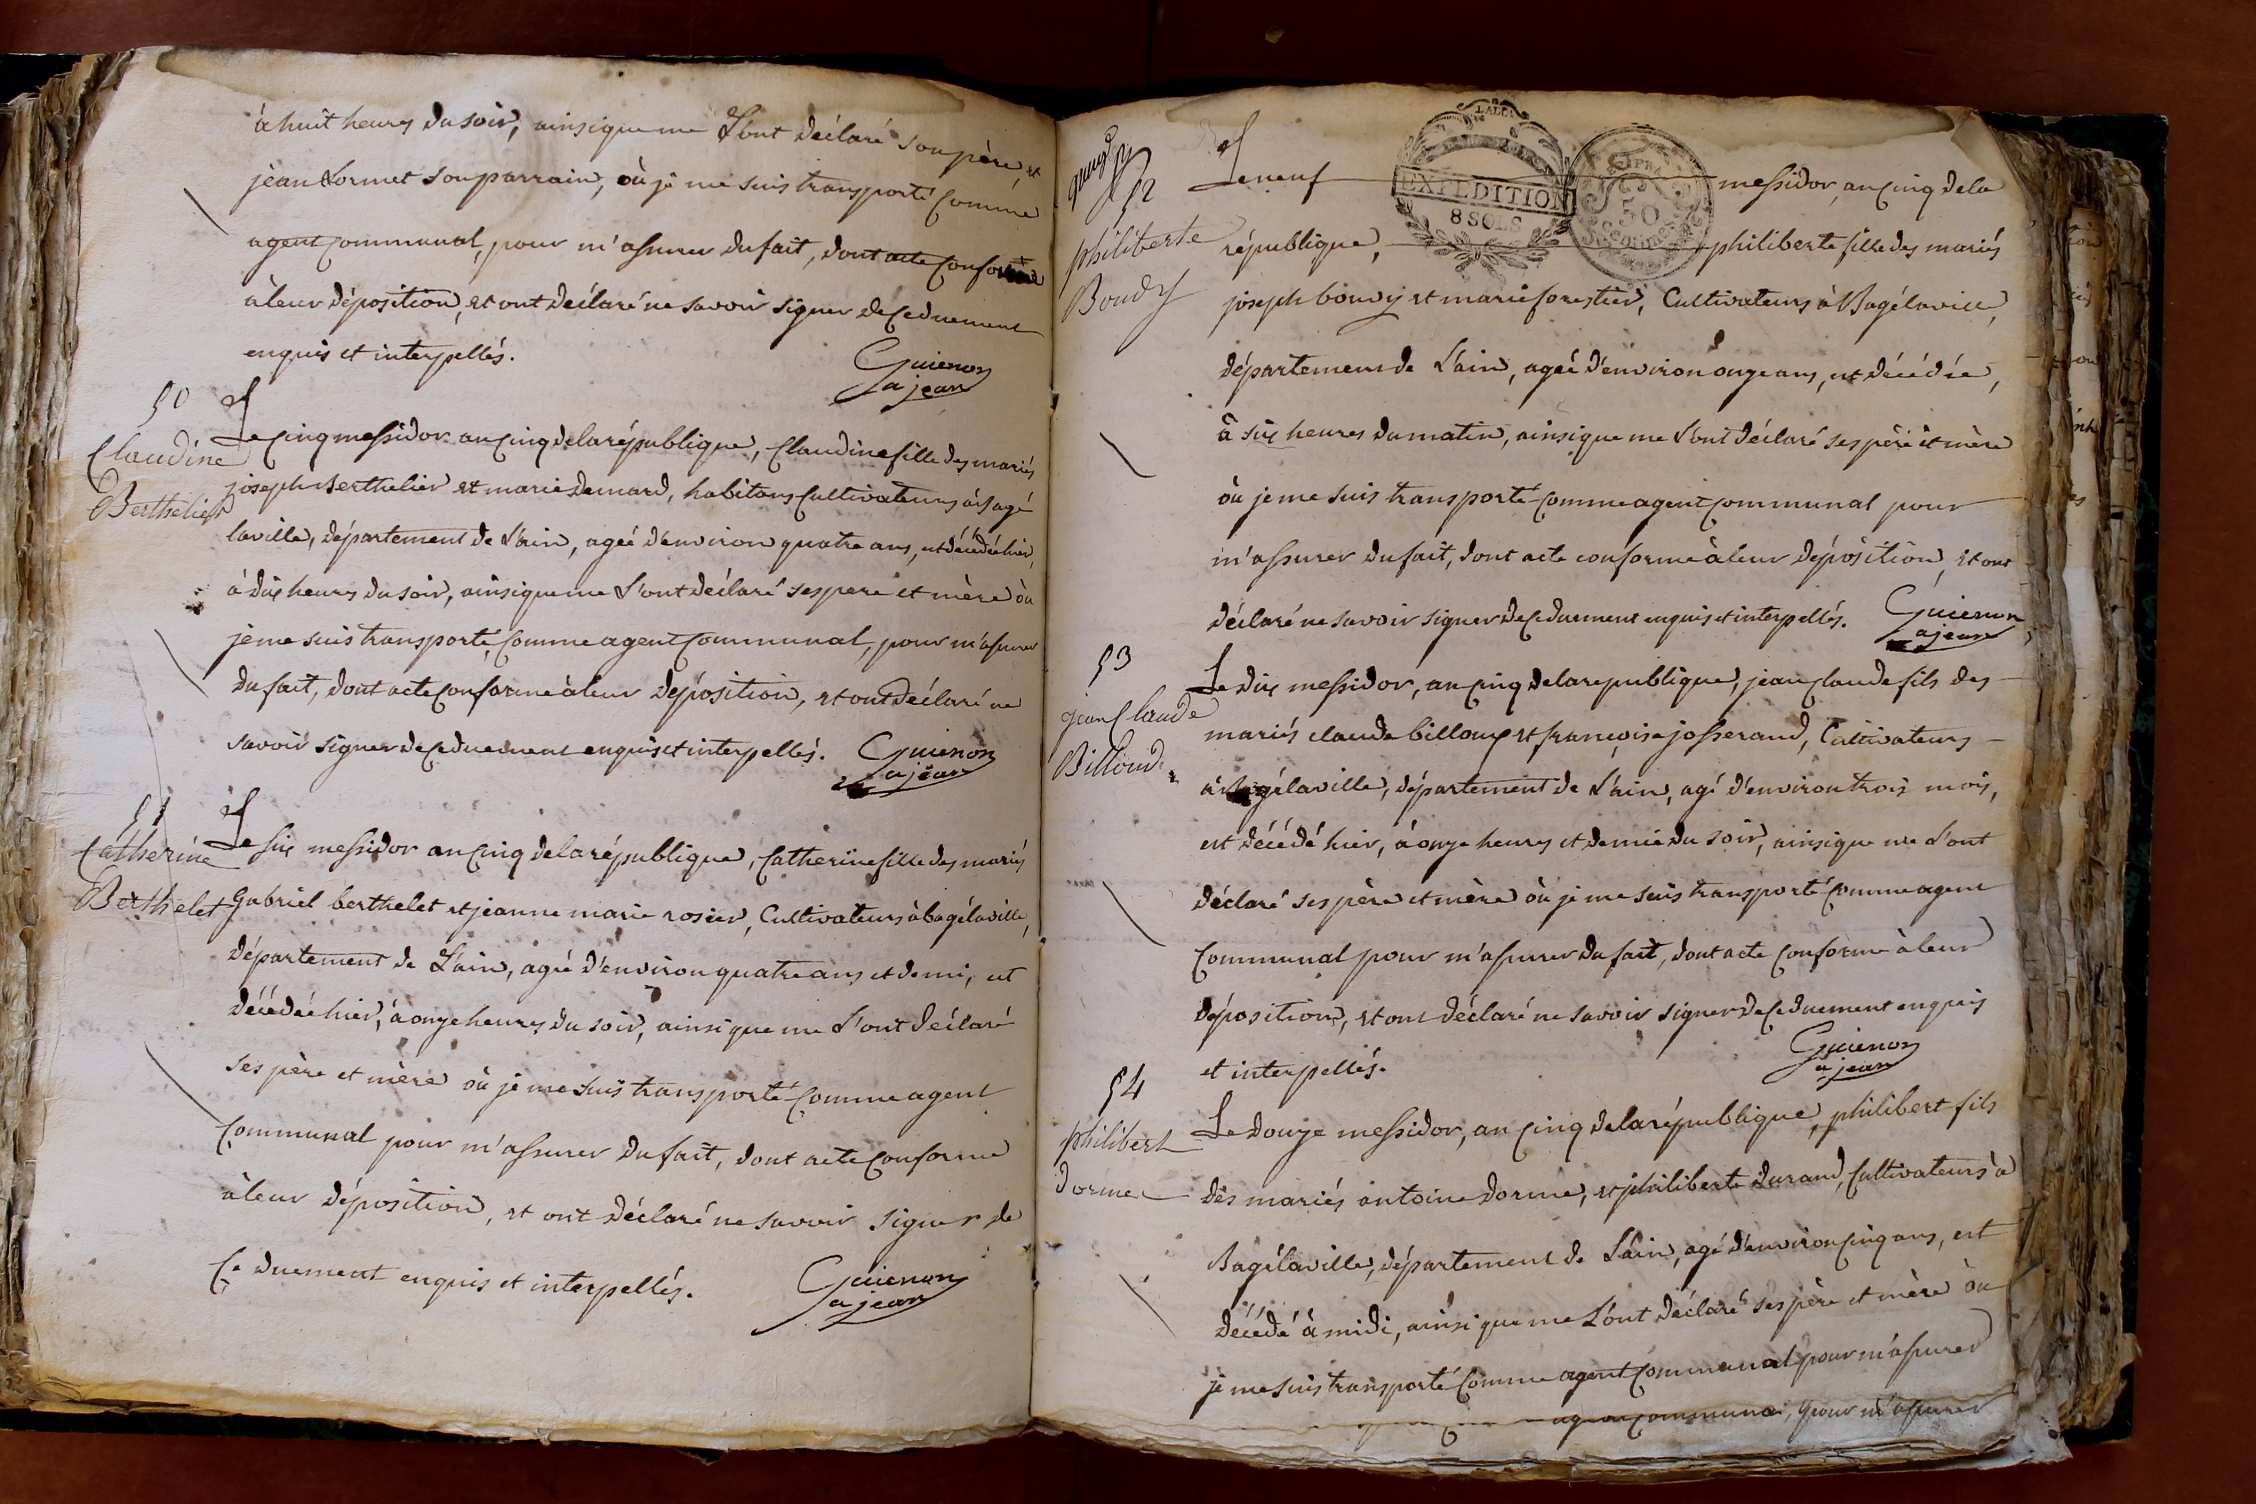 à huit heures du soir, ainsi que me L'ont déclaré son père, et
jean Lormet son parrain, où je me suis transporté comme
agent communal, pour m'assurer du fait, dont acte conforme
à leur déposition, et ont déclaré ne savoir signer de ce duement
enquis et interpellés.
Guienon
a jean
50
Claudine
Berthelier
Le cinq messidor an cinq de la république, Claudine fille des mariés
joseph Berthelier et marie Demard, habitans cultivateurs à Bagé
laville, département de L'ain, agée d'environ quatre ans, est décédée hier,
à dix heures du soir, ainsi que me L'ont déclaré ses pere et mère où
je me suis transporté, comme agent communal, pour m'assurer
du fait, dont acte conforme à leur déposition, et ont déclaré ne
savoir signer de ce duement enquis et interpellés.
Guienon
a jean
51
Catherine
Berthelet
Le six messidor an cinq de la république, Catherine fille des mariés
Gabriel berthelet et jeanne marie rosier, Cultivateurs à bagélaville,
département de L'ain, agée d'environ quatre ans et demi, est
décédée hier, à onze heures du soir, ainsi que me L'ont déclaré
ses père et mère où je me suis transporté comme agent
communal pour m'assurer du fait, dont acte conforme
à leur déposition, et ont déclaré ne savoir signer de
ce duement enquis et interpellés.
Guienon
a jean
52
philiberte
Boudy
EXPEDITION
8 SOLS
50
Le neuf messidor, an cinq de la
république, philiberte fille des mariés
joseph bouvy et marie forestier, Cultivateurs à Bagélaville,
département de L'ain, agée d'environ onze ans, est décédée,
à six heures du matin, ainsi que me L'ont déclaré ses père et mère
où je me suis transporté comme agent communal pour
m'assurer du fait, dont acte conforme à leur déposition, et ont
déclaré ne savoir signer de ce duement enquis et interpellés.
Guienon
a jean
53
jean Claude
Billoud
Le dix messidor, an cinq de la republique, jean Claude fils des
mariés claude billoux et françoise josserand, Cultivateurs
à Bagélaville, département de L'ain, agé d'environ trois mois,
est décédé hier, à onze heures et demie du soir, ainsi que me L'ont
déclaré ses père et mère où je me suis transporté comme agent
communal pour m'assurer du fait, dont acte conforme à leur
déposition, et ont déclaré ne savoir signer de ce duement enquis
et interpellés.
Guienon
a jean
54
philibert
dorme
Le douze messidor, an cinq de la république, philibert fils
des mariés antoine dorme, et philiberte durand, Cultivateurs à
Bagélaville, département de L'ain, agé d'environ cinq ans, est
décédé à midi, ainsi que me L'ont déclaré ses père et mère où
je me suis transporté comme agent communal pour m'assurer
pour m'assurer